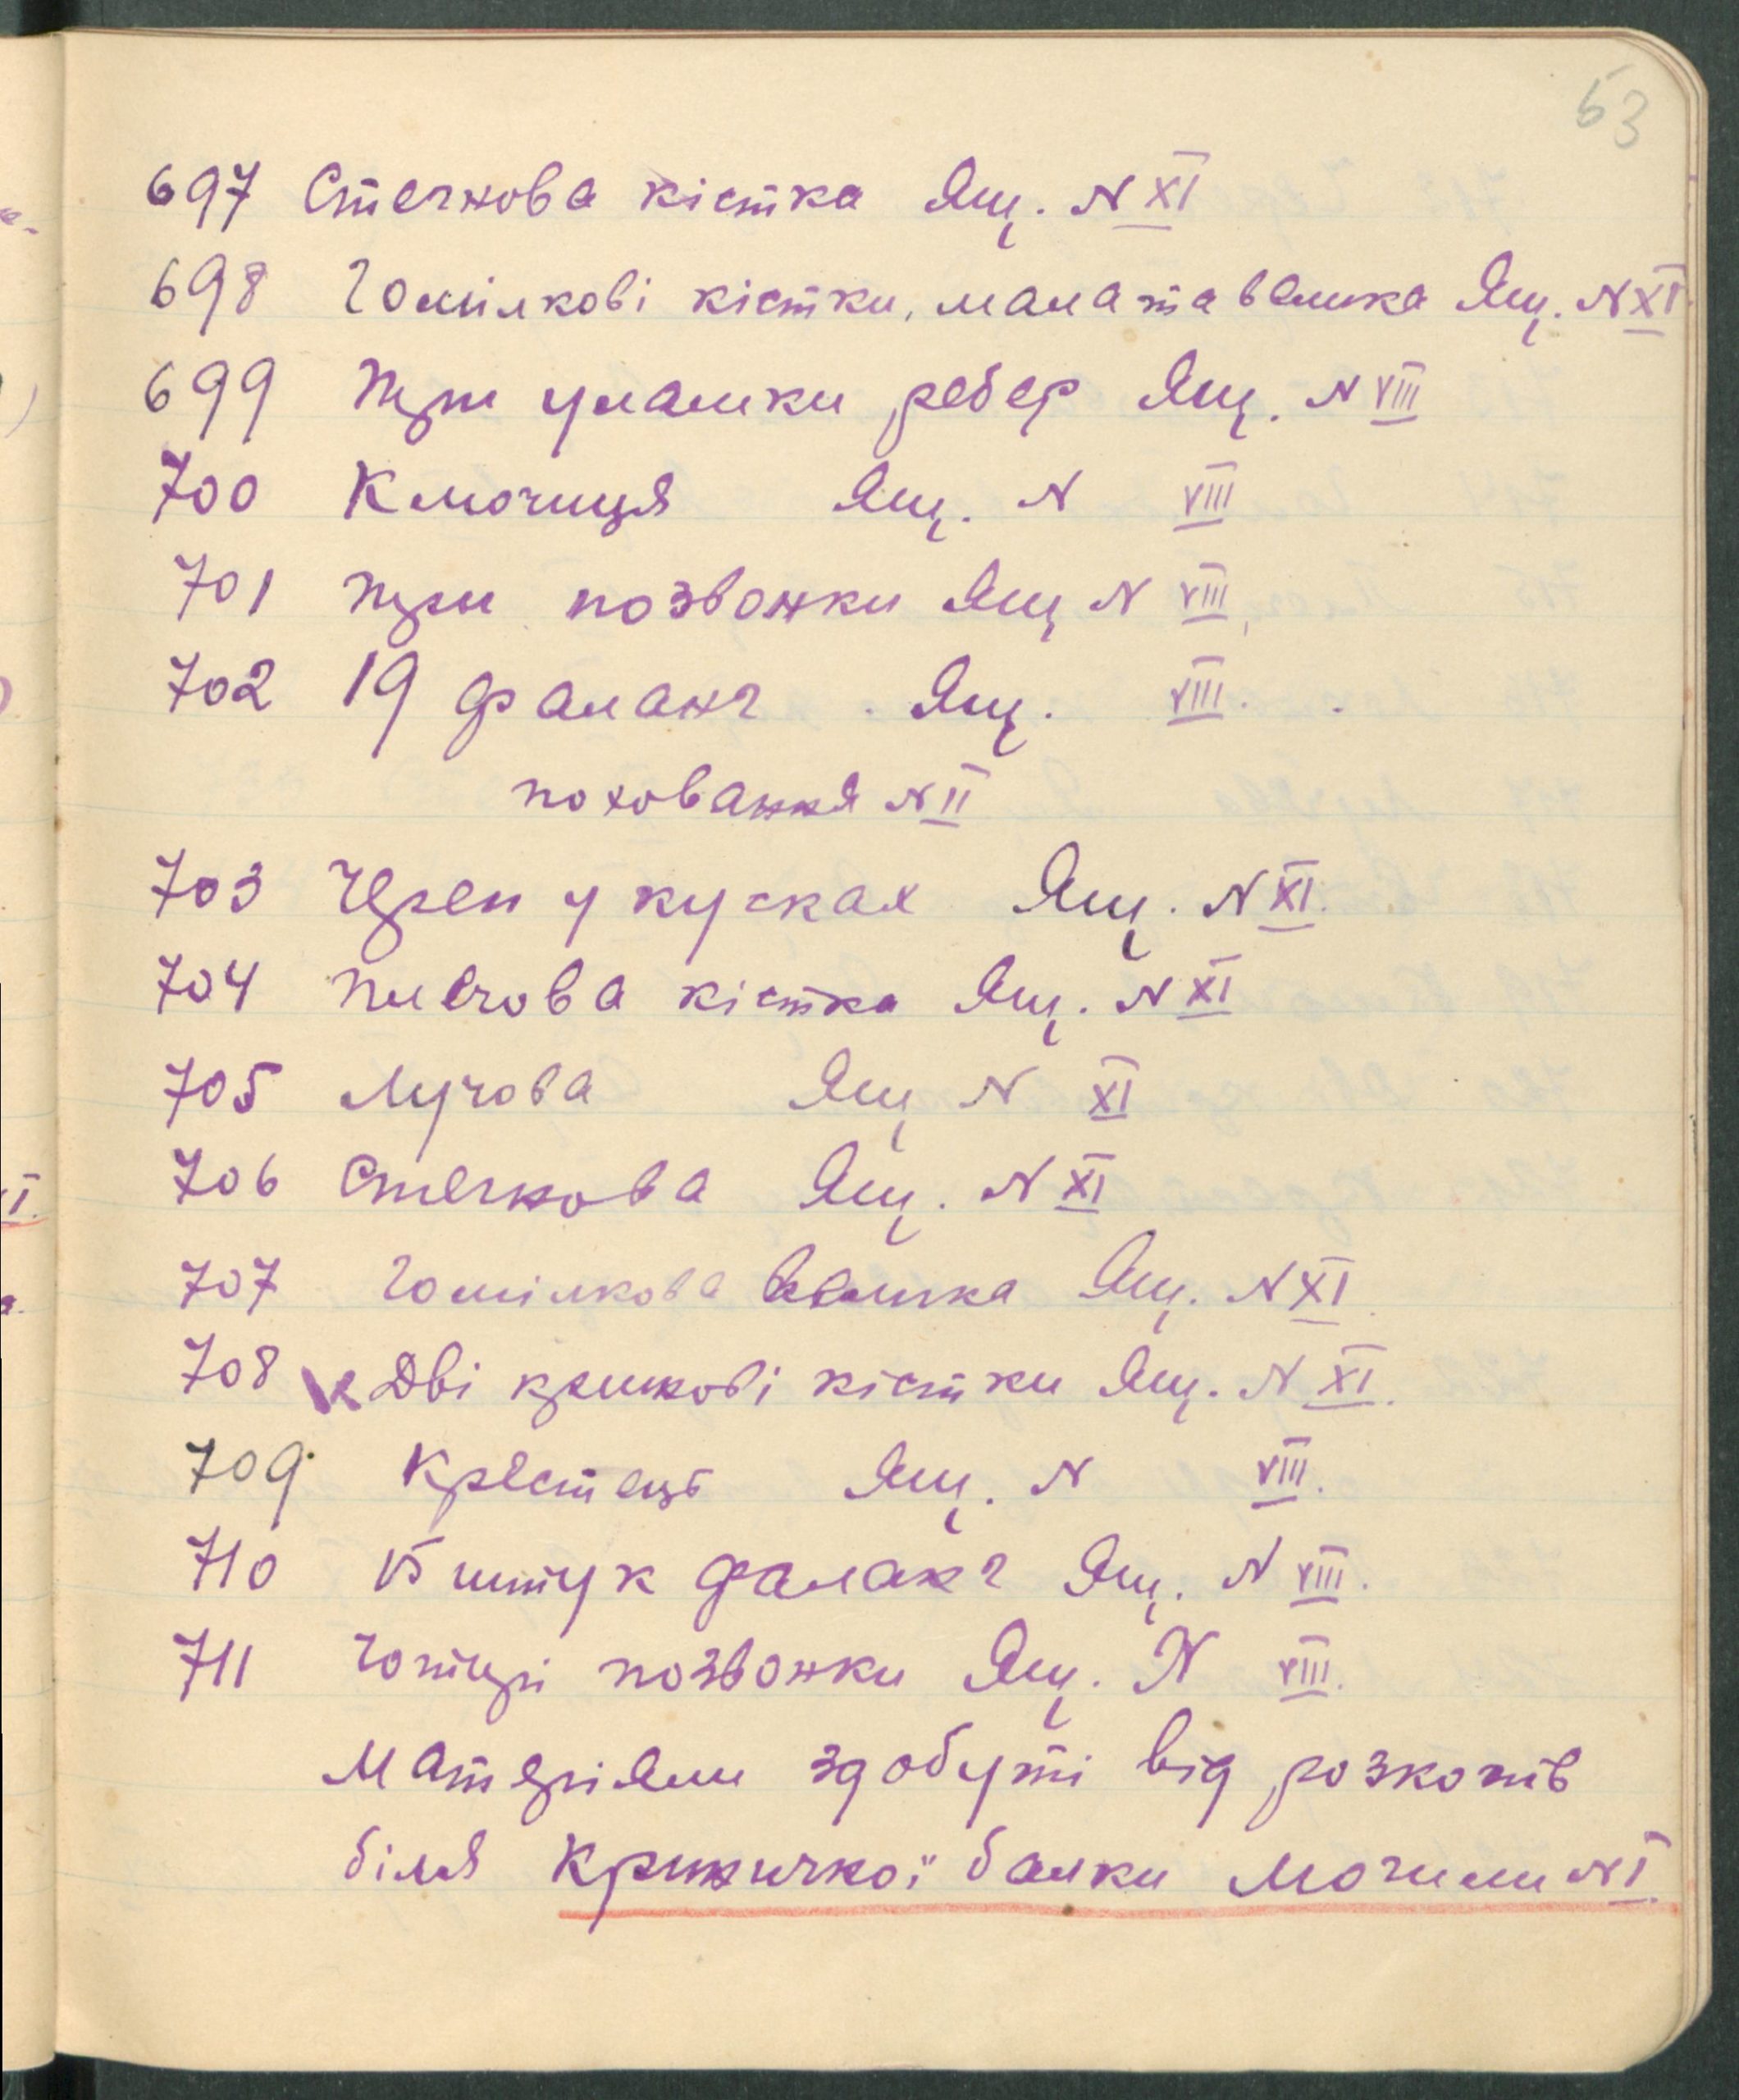 53
697 Стегнова кістка Ящ. N XI
698 Гомілкові кістки, мала та велика Ящ. N XI
699 Три уламки ребер Ящ. N VIII
700 Ключиця Ящ. N VIII
701 Три позвонки Ящ N VIII
702 19 фаланг Ящ. VIII.
поховання N II
703 Череп у кусках Ящ. N XI.
704 Плечова кістка Ящ. N XI
705 Лучова Ящ N XI
706 Стегнова Ящ. N XI
707 Гомілкова велика Ящ. N XI.
708 Дві крижові кістки Ящ. N XI.
709 Крестець Ящ. N VIII.
710 15 штук фаланг Ящ. N VIII.
711 Чотирі позвонки Ящ. N VIII.
Матеріяли здобуті від розкопів
біля балки Могили N I.